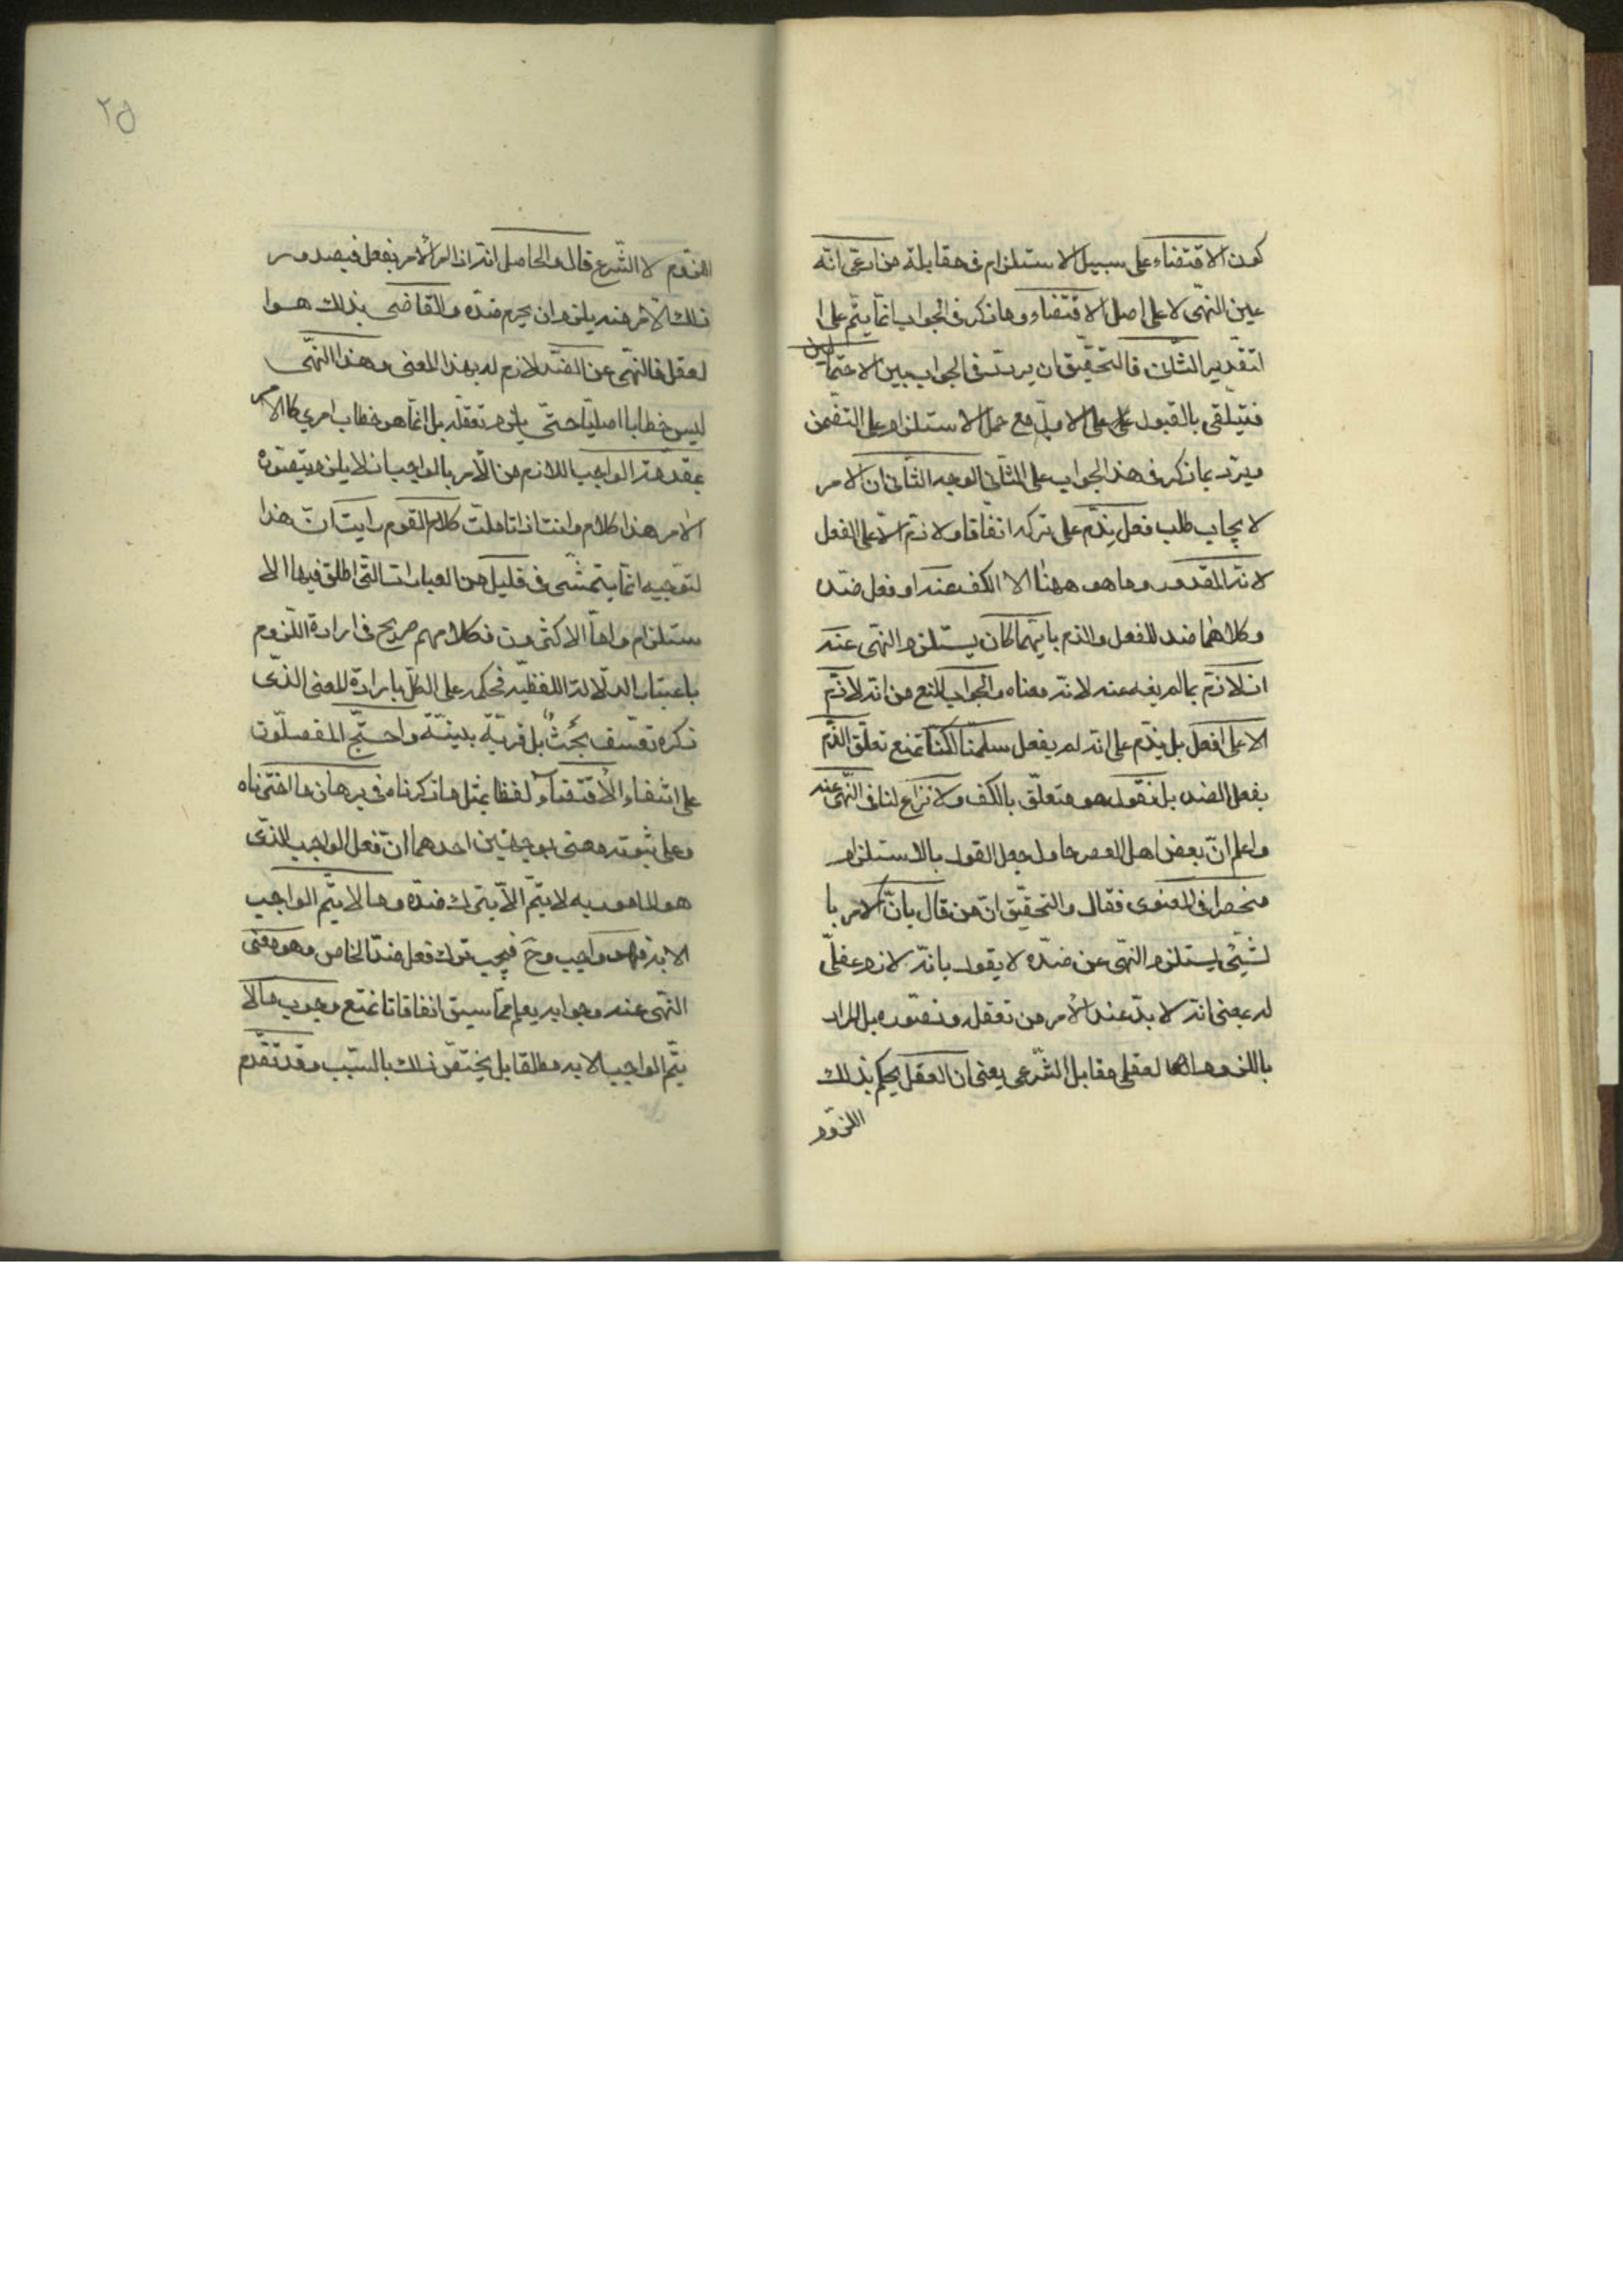 كون الاقتضاء على سبيل الاستلزام فى مقابلة من ادعى انه
عين النهى لا على اصل الاقتضاء وما ذكر فى الجواب انما يتم على ا
لتقدير الثانى فالتحقيق ان يردد فى الجواب بين الاحتمالين
فيتلقى بالقبول على الاول مع حمل الاستلزام على التضمن
ويرد بما ذكر فى هذا الجواب على الثانى الوجه الثانى ان الامر
لايجاب طلب فعل يذم على تركه اتفاقا ولا ذم الا على الفعل
لانه المقدور وما هو ههنا الا الكف عنه او فعل ضده
وكلاهما ضد للفعل والذم بايهما كان يستلزم النهى عنه
اذ لا ذم بما لم ينه عنه لانه معناه والجواب المنع من انه لا ذم
الا على افعل بل يذم على انه لم يفعل سلمنا لكنا نمنع تعلق الذم
بفعل الضد بل نقول هو متعلق بالكف ولا نزاع لنا فى النهى عنه
واعلم ان بعض اهل العصر حاول جعل القول بالاستلزام
منحصرا فى المعنوى فقال والتحقيق ان من قال بان الامر با
لشيئ يستلزم النهى عن ضده لا يقول بانه لازم عقلى
له بمعنى انه لا بد عند الامر من تعقله وتصوره بل المراد
باللزوم العقلى مقابل الشرعى يعنى ان العقل يحكم بذلك
اللزوم
٢٥
اللزوم لا الشرع قال والحاصل انه اذا امر الامر بفعل فبصدور
ذلك الامر منه يلزم ان يحرم ضده والقاضى بذلك هو ا
لعقل فالنهى عن الضد لازم له بهذا المعنى وهذا النهى
ليس خطابا اصليا حتى يلزم تعقله بل انما هو خطاب كالامر
بمقدمة الواجب اللازم من الامر بالواجب اذ لا يلزم يتصوره
الامر هذا كلامه وانت اذا تاملت كلام القوم رايت ان هذا
لتوجيه انما يتمشى فى قليل من العبارات التى اطلق فيها الا
ستلزام واما الاكثرون فكلامهم صريح فى ارادة اللزوم
باعتبار الدلالة اللفظيه فحكمه على الكل بارادة المعنى الذى
ذكره تعسف بحت بل فرية بينة واحتج المفصلون
على انتفاء الاقتضاء لفظا بمثل ما ذكرناه فى برهان ما اخترناه
وعلى ثبوته معنى بوجهين احدهما ان فعل الواجب الذى
هو المامور به لا يتم الا بترك ضده وما لا يتم الواجب
الا به فهو واجب وح فيجب ترك فعل ضد الخاص وهو معنى
النهى عنه وجوابه يعلم مما سبق انفا فانا نمنع وجوب ما لا
يتم الواجب الا به مطلقا بل يختص ذلك بالسبب وقد تقدم